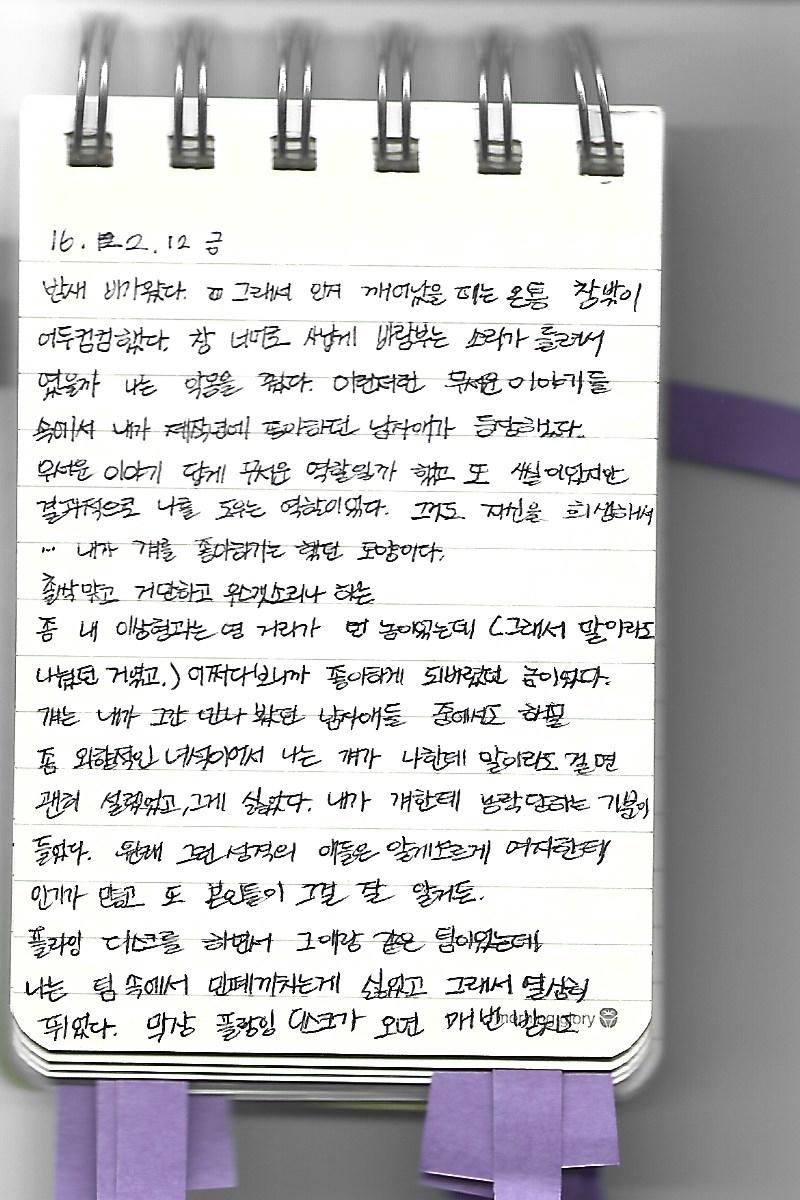 16. 2. 12 금
밤새 비가왔다. 그래서 먼저 깨어났을 때는 온통 창밖이
어두컴컴했다. 창 너머로 사납게 바람부는 소리가 들려서
였을까 나는 악몽을 꿨다. 이런저런 무서운 이야기들
속에서 내가 재작년에 좋아하던 남자애가 등장했다.
무서운 이야기 답게 무서운 역할일까 했고 또 였지만
결과적으로 나를 도우는 역할이었다. 그것도 자신을 희생해서
... 내가 걔를 좋아하기는 했던 모양이다.
촐싹맞고 거만하고 우스갯소리나 하는
좀 내 이상형과는 영 거리가 먼 놈이었는데 (그래서 말이라도
나눴던 거였고.) 어쩌다보니까 좋아하게 되버렸던 놈이었다.
걔는 내가 그간 만나 봤던 남자애들 중에서도 하필
좀 외향적인 녀석이어서 나는 걔가 나한테 말이라도 걸면
괜히 설렜었고, 그게 싫었다. 내가 걔한테 농락당하는 기분이
들었다. 원래 그런 성격의 애들은 알게모르게 여자한테
인기가 많고 또 본인들이 그걸 잘 알거든.
플라잉 디스크를 하면서 그애랑 같은 팀이었는데
나는 팀 속에서 민폐끼치는게 싫었고 그래서 열심히
뛰었다. 막상 플라잉 디스크가 오면 매번
morning glory